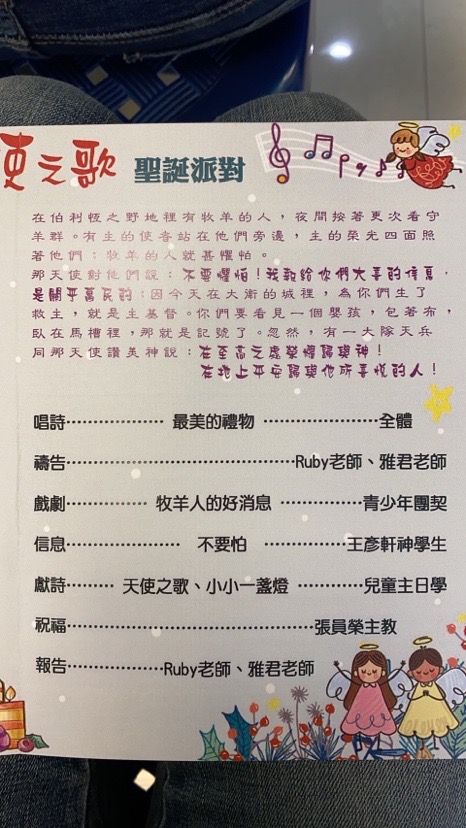 使之歌 聖誕派對
在伯利恆之野地裡有牧羊的人，夜間按著更次看守
羊群。有主的使者站在他們旁邊，主的榮光四面照
著他們；牧羊的人就甚懼怕。
那天使對他們說：不要懼怕！我報給你們大喜的信息，
是關乎萬民的；因今天在大衛的城裡，為你們生了
救主，就是主基督。你們要看見一個嬰孩，包著布，
臥在馬槽裡，那就是記號了。忽然，有一大隊天兵
同那天使讚美神說：在至高之處榮耀歸與神！
在地上平安歸與他所喜悅的人！
唱詩⋯⋯⋯⋯⋯⋯ 最美的禮物 ⋯⋯⋯⋯⋯⋯⋯全體
禱告⋯⋯⋯⋯⋯⋯⋯⋯⋯⋯⋯⋯⋯⋯Ruby老師、雅君老師
戲劇⋯⋯⋯⋯⋯ 牧羊人的好消息 ⋯⋯⋯⋯⋯青少年團契
信息⋯⋯⋯⋯⋯⋯ 不要怕 ⋯⋯⋯⋯⋯王彥軒神學生
獻詩⋯⋯⋯ 天使之歌、小小一盞燈 ⋯⋯⋯⋯兒童主日學
祝福⋯⋯⋯⋯⋯⋯⋯⋯⋯⋯⋯⋯⋯⋯⋯張員榮主教
報告⋯⋯⋯⋯⋯⋯Ruby老師、雅君老師